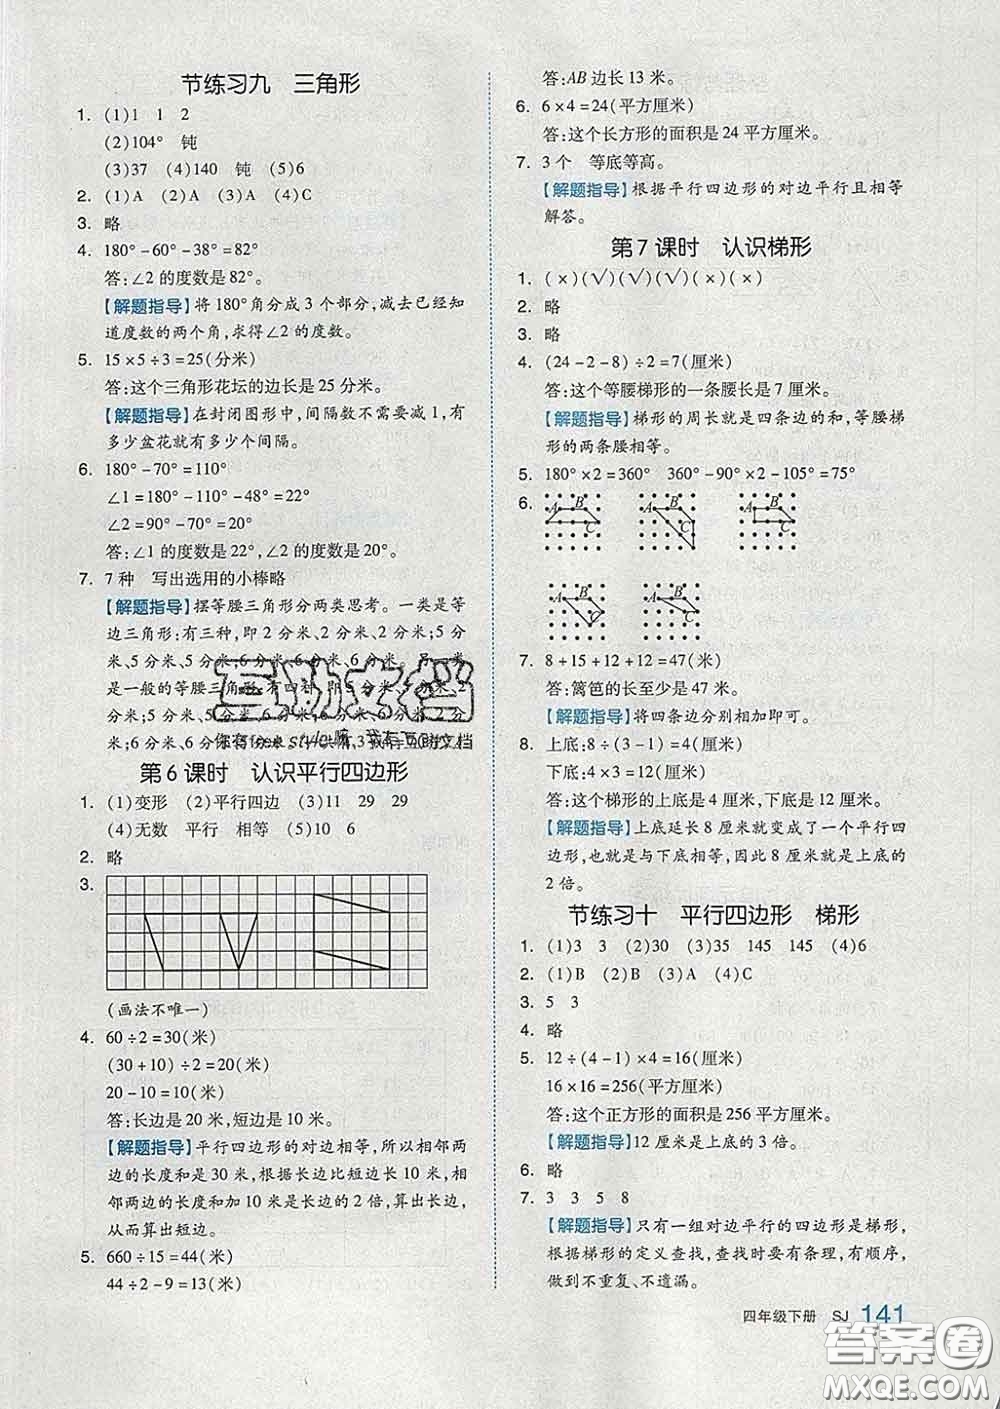 节练习九 三角形
1. (1)1 1 2
(2)104° 钝
(3)37 (4)140 钝 (5)6
2. (1)A (2)A (3)A (4)C
3. 略
4. 180°-60°-38°=82°
答:∠2的度数是82°。
【解题指导】将180°角分成3个部分,减去已经知
道度数的两个角,求得∠2的度数。
5. 15×5÷3=25(分米)
答:这个三角形花坛的边长是25分米。
【解题指导】在封闭图形中,间隔数不需要减1,有
多少盆花就有多少个间隔。
6. 180°-70°=110°
∠1=180°-110°-48°=22°
∠2=90°-70°=20°
答:∠1的度数是22°,∠2的度数是20°。
7. 7种 写出选用的小棒略
【解题指导】摆等腰三角形分两类思考。一类是等
边三角形:有三种,即2分米、2分米、2分米;5分
米、5分米、5分米;6分米、6分米、6分米。另一类
是一般的等腰三角形:有四种,即5分米、5分米、
2分米;5分米、5分米、6分米;6分米、6分米、2分
米;6分米、6分米、5分米。
互助文档
你有 style嘛,我有互助文档
第6课时 认识平行四边形
1. (1)变形 (2)平行四边 (3)11 29 29
(4)无数 平行 相等 (5)10 6
2. 略
3.
(画法不唯一)
4. 60÷2=30(米)
(30+10)÷2=20(米)
20-10=10(米)
答:长边是20米,短边是10米。
【解题指导】平行四边形的对边相等,所以相邻两
边的长度和是30米,根据长边比短边长10米,相
邻两边的长度和加10米是长边的2倍,算出长边,
从而算出短边。
5. 660÷15=44(米)
44÷2-9=13(米)
答:AB边长13米。
6. 6×4=24(平方厘米)
答:这个长方形的面积是24平方厘米。
7. 3个 等底等高。
【解题指导】根据平行四边形的对边平行且相等
解答。
第7课时 认识梯形
1. (×)(√)(√)(√)(×)(×)
2. 略
3. 略
4. (24-2-8)÷2=7(厘米)
答:这个等腰梯形的一条腰长是7厘米。
【解题指导】梯形的周长就是四条边的和,等腰梯
形的两条腰相等。
5. 180°×2=360° 360°-90°×2-105°=75°
6. A B C A B C A B C
A B C A B C
7. 8+15+12+12=47(米)
答:篱笆的长至少是47米。
【解题指导】将四条边分别相加即可。
8. 上底:8÷(3-1)=4(厘米)
下底:4×3=12(厘米)
答:这个梯形的上底是4厘米,下底是12厘米。
【解题指导】上底延长8厘米就变成了一个平行四
边形,也就是与下底相等,因此8厘米是上底的
2倍。
节练习十 平行四边形 梯形
1. (1)3 3 (2)30 (3)35 145 145 (4)6
2. (1)B (2)B (3)A (4)C
3. 5 3
4. 略
5. 12÷(4-1)×4=16(厘米)
16×16=256(平方厘米)
答:这个正方形的面积是256平方厘米。
【解题指导】12厘米是上底的3倍。
6. 略
7. 3 3 5 8
【解题指导】只有一组对边平行的四边形是梯形,
根据梯形的定义查找,查找时要有条理,有顺序,
做到不重复、不遗漏。
四年级下册 SJ 141
答案圈
MXQE.COM